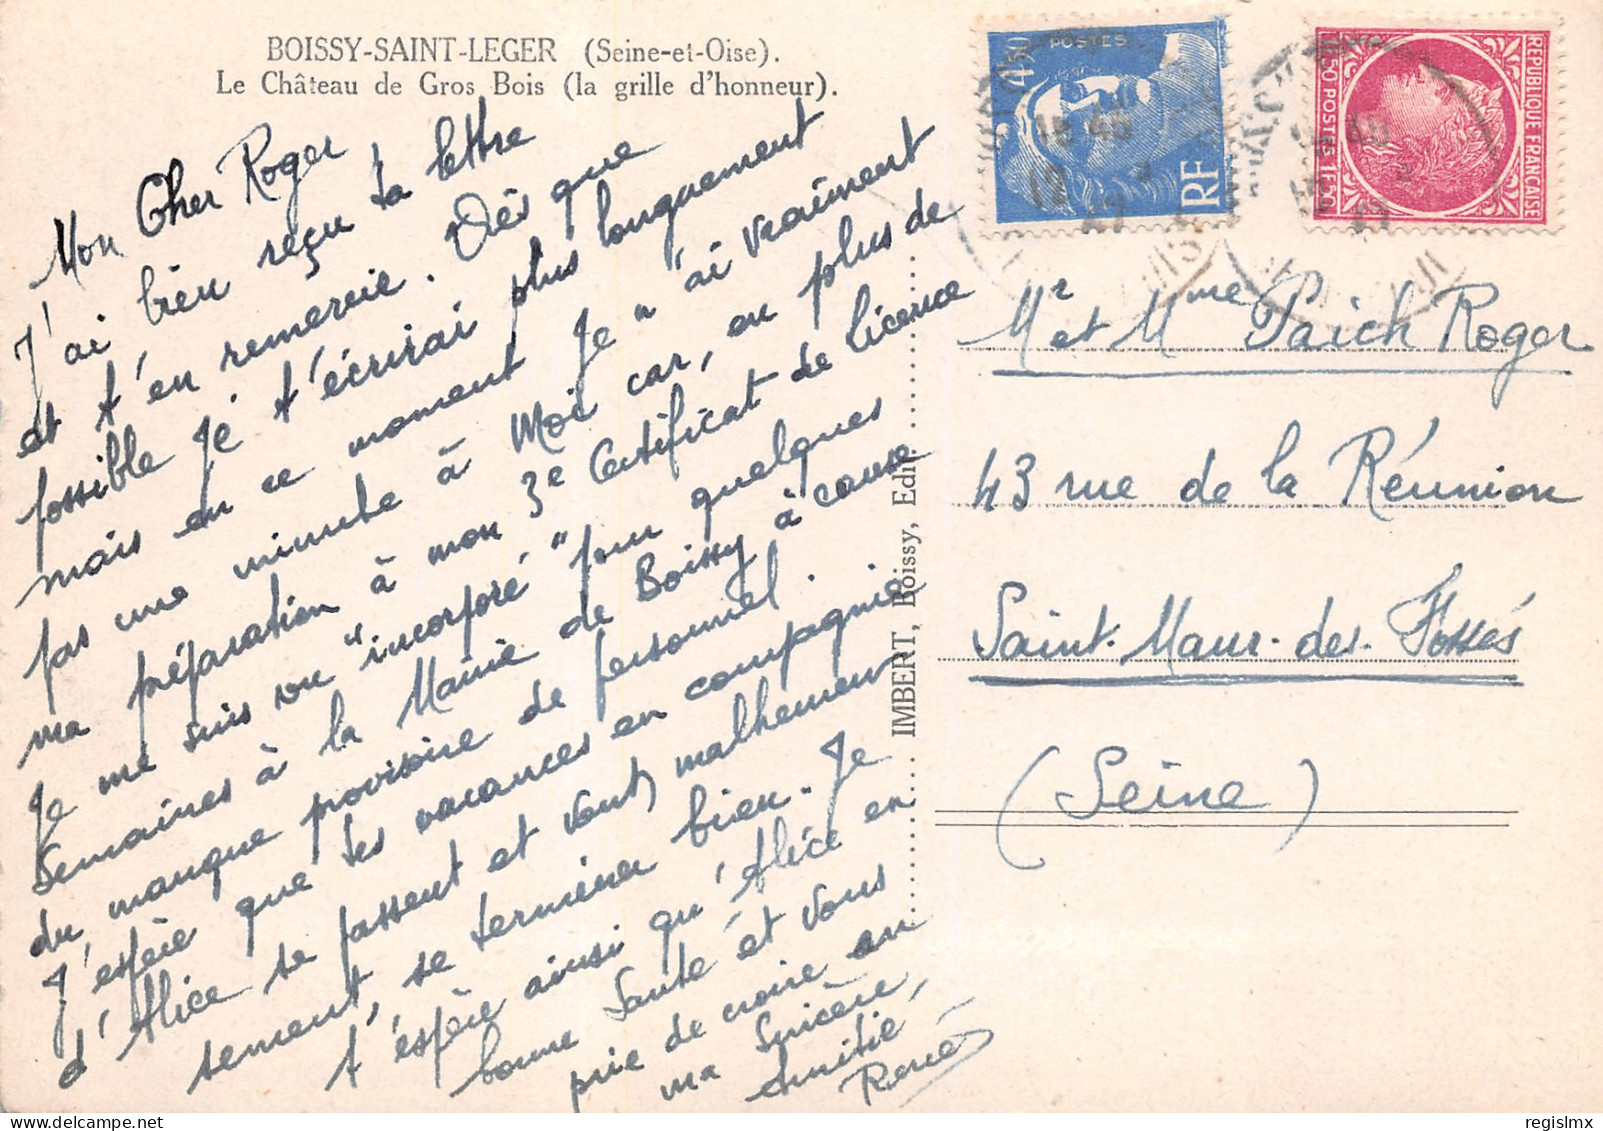 BOISSY-SAINT-LEGER (Seine-et-Oise).
Le Château de Gros Bois (la grille d'honneur).
Mon Cher Roger
J'ai bien reçu ta lettre
et t'en remercie. Dès que
possible je t'écrirai plus longuement
mais en ce moment je "ai vraiment
pas une minute à Moi car, en plus de
ma préparation à mon 3e Certificat de Licence
Je me suis vu "incorporé" pour quelques
Semaines à la Mairie de Boissy à cause
du manque provisoire de personnel.
J'espère que tes vacances en compagnie
d'Alice se passent et vont, malheureu
sement, se terminer bien. Je
t'espère ainsi qu'Alice en
bonne Santé et vous
prie de croire en
ma Sincère,
Amitié,
René
IMBERT, Boissy, Edit.
4F50
POSTES
RF
REPUBLIQUE FRANÇAISE
1F50 POSTES 1F50
15 40
12
47
Mr et Mme Paich Roger
43 rue de la Réunion
Saint-Maur-des-Fossés
(Seine)
regislmx